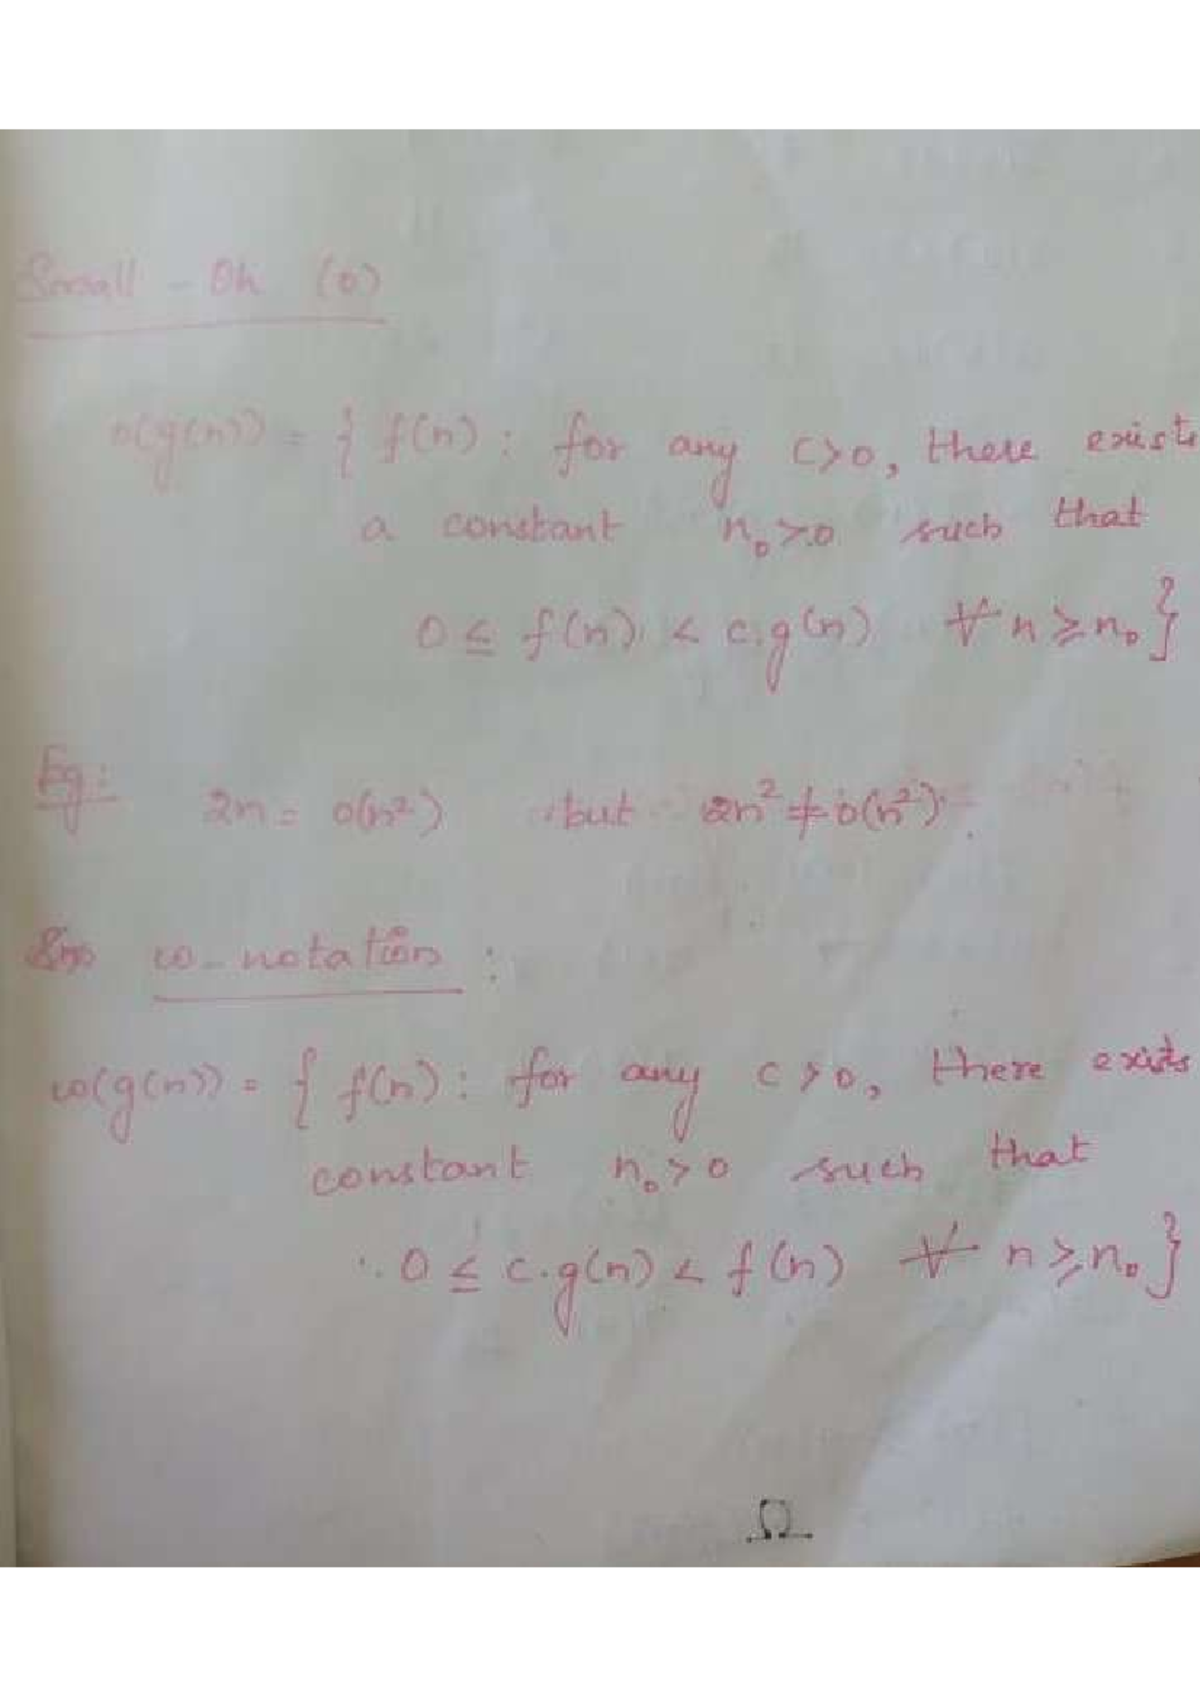 Small - Oh (o)
o(g(n)) = { f(n) : for any c>0, there exists
a constant n₀>0 such that
0 ≤ f(n) < c.g(n) ∀ n ≥ n₀ }
Eg:
2n = o(n²) but 2n² ≠ o(n²).
ω-notation :
ω(g(n)) = { f(n) : for any c>0, there exists
constant n₀>0 such that
0 ≤ c.g(n) < f(n) ∀ n ≥ n₀ }
Ω